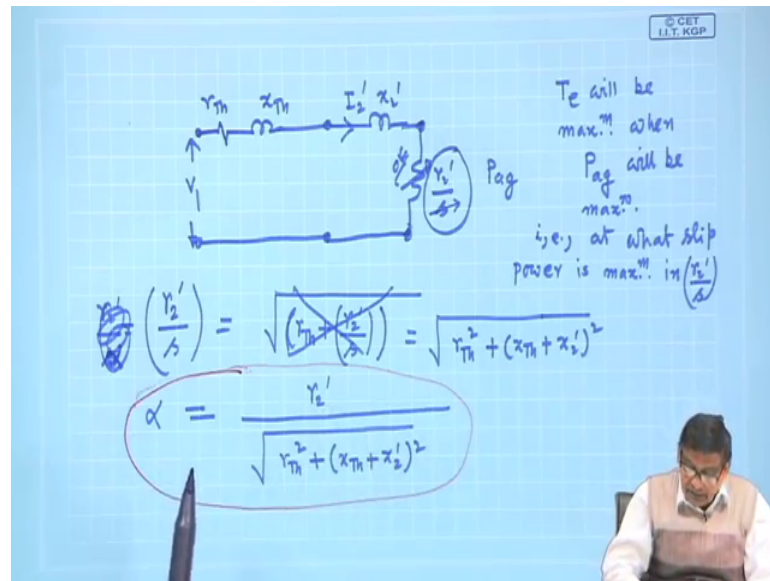 © CET
I.I.T. KGP
r_Th x_Th I_2' x_2'
V_1
r_2'/s P_ag
T_e will be
max.^m when
P_ag will be
max^m.
i,e., at what slip
power is max.^m in (r_2'/s)
(r_2'/s) = √((r_Th + (r_2'/s))) = √(r_Th^2 + (x_Th + x_2')^2)
α = r_2' / √(r_Th^2 + (x_Th + x_2')^2)